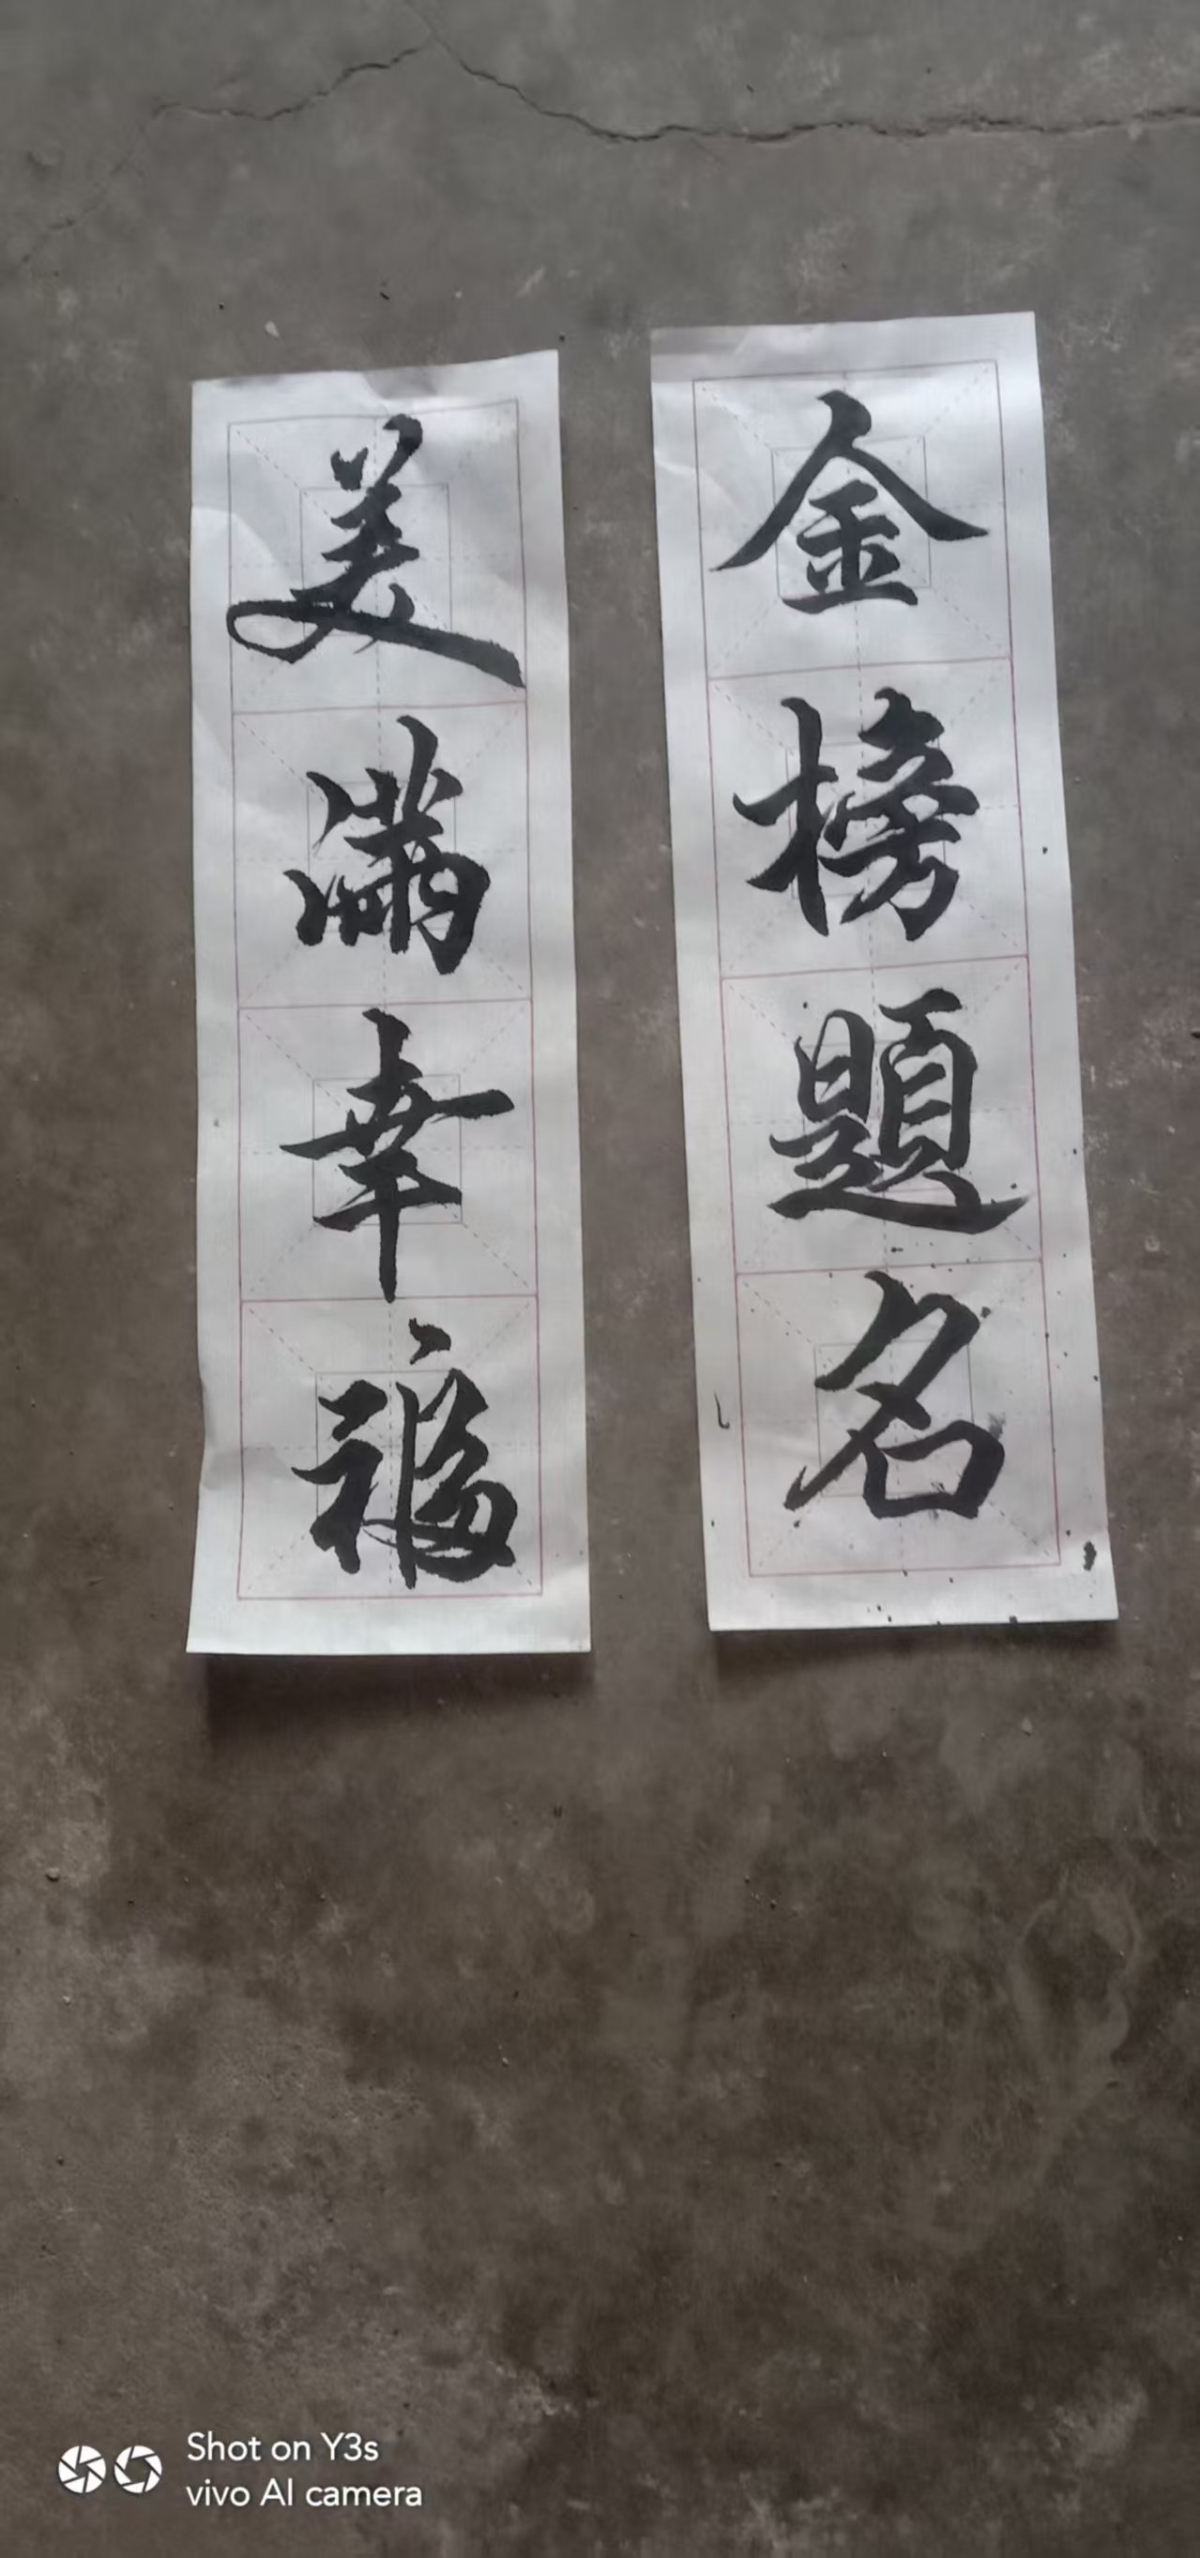 金榜題名
美滿幸福
Shot on Y3s
vivo AI camera